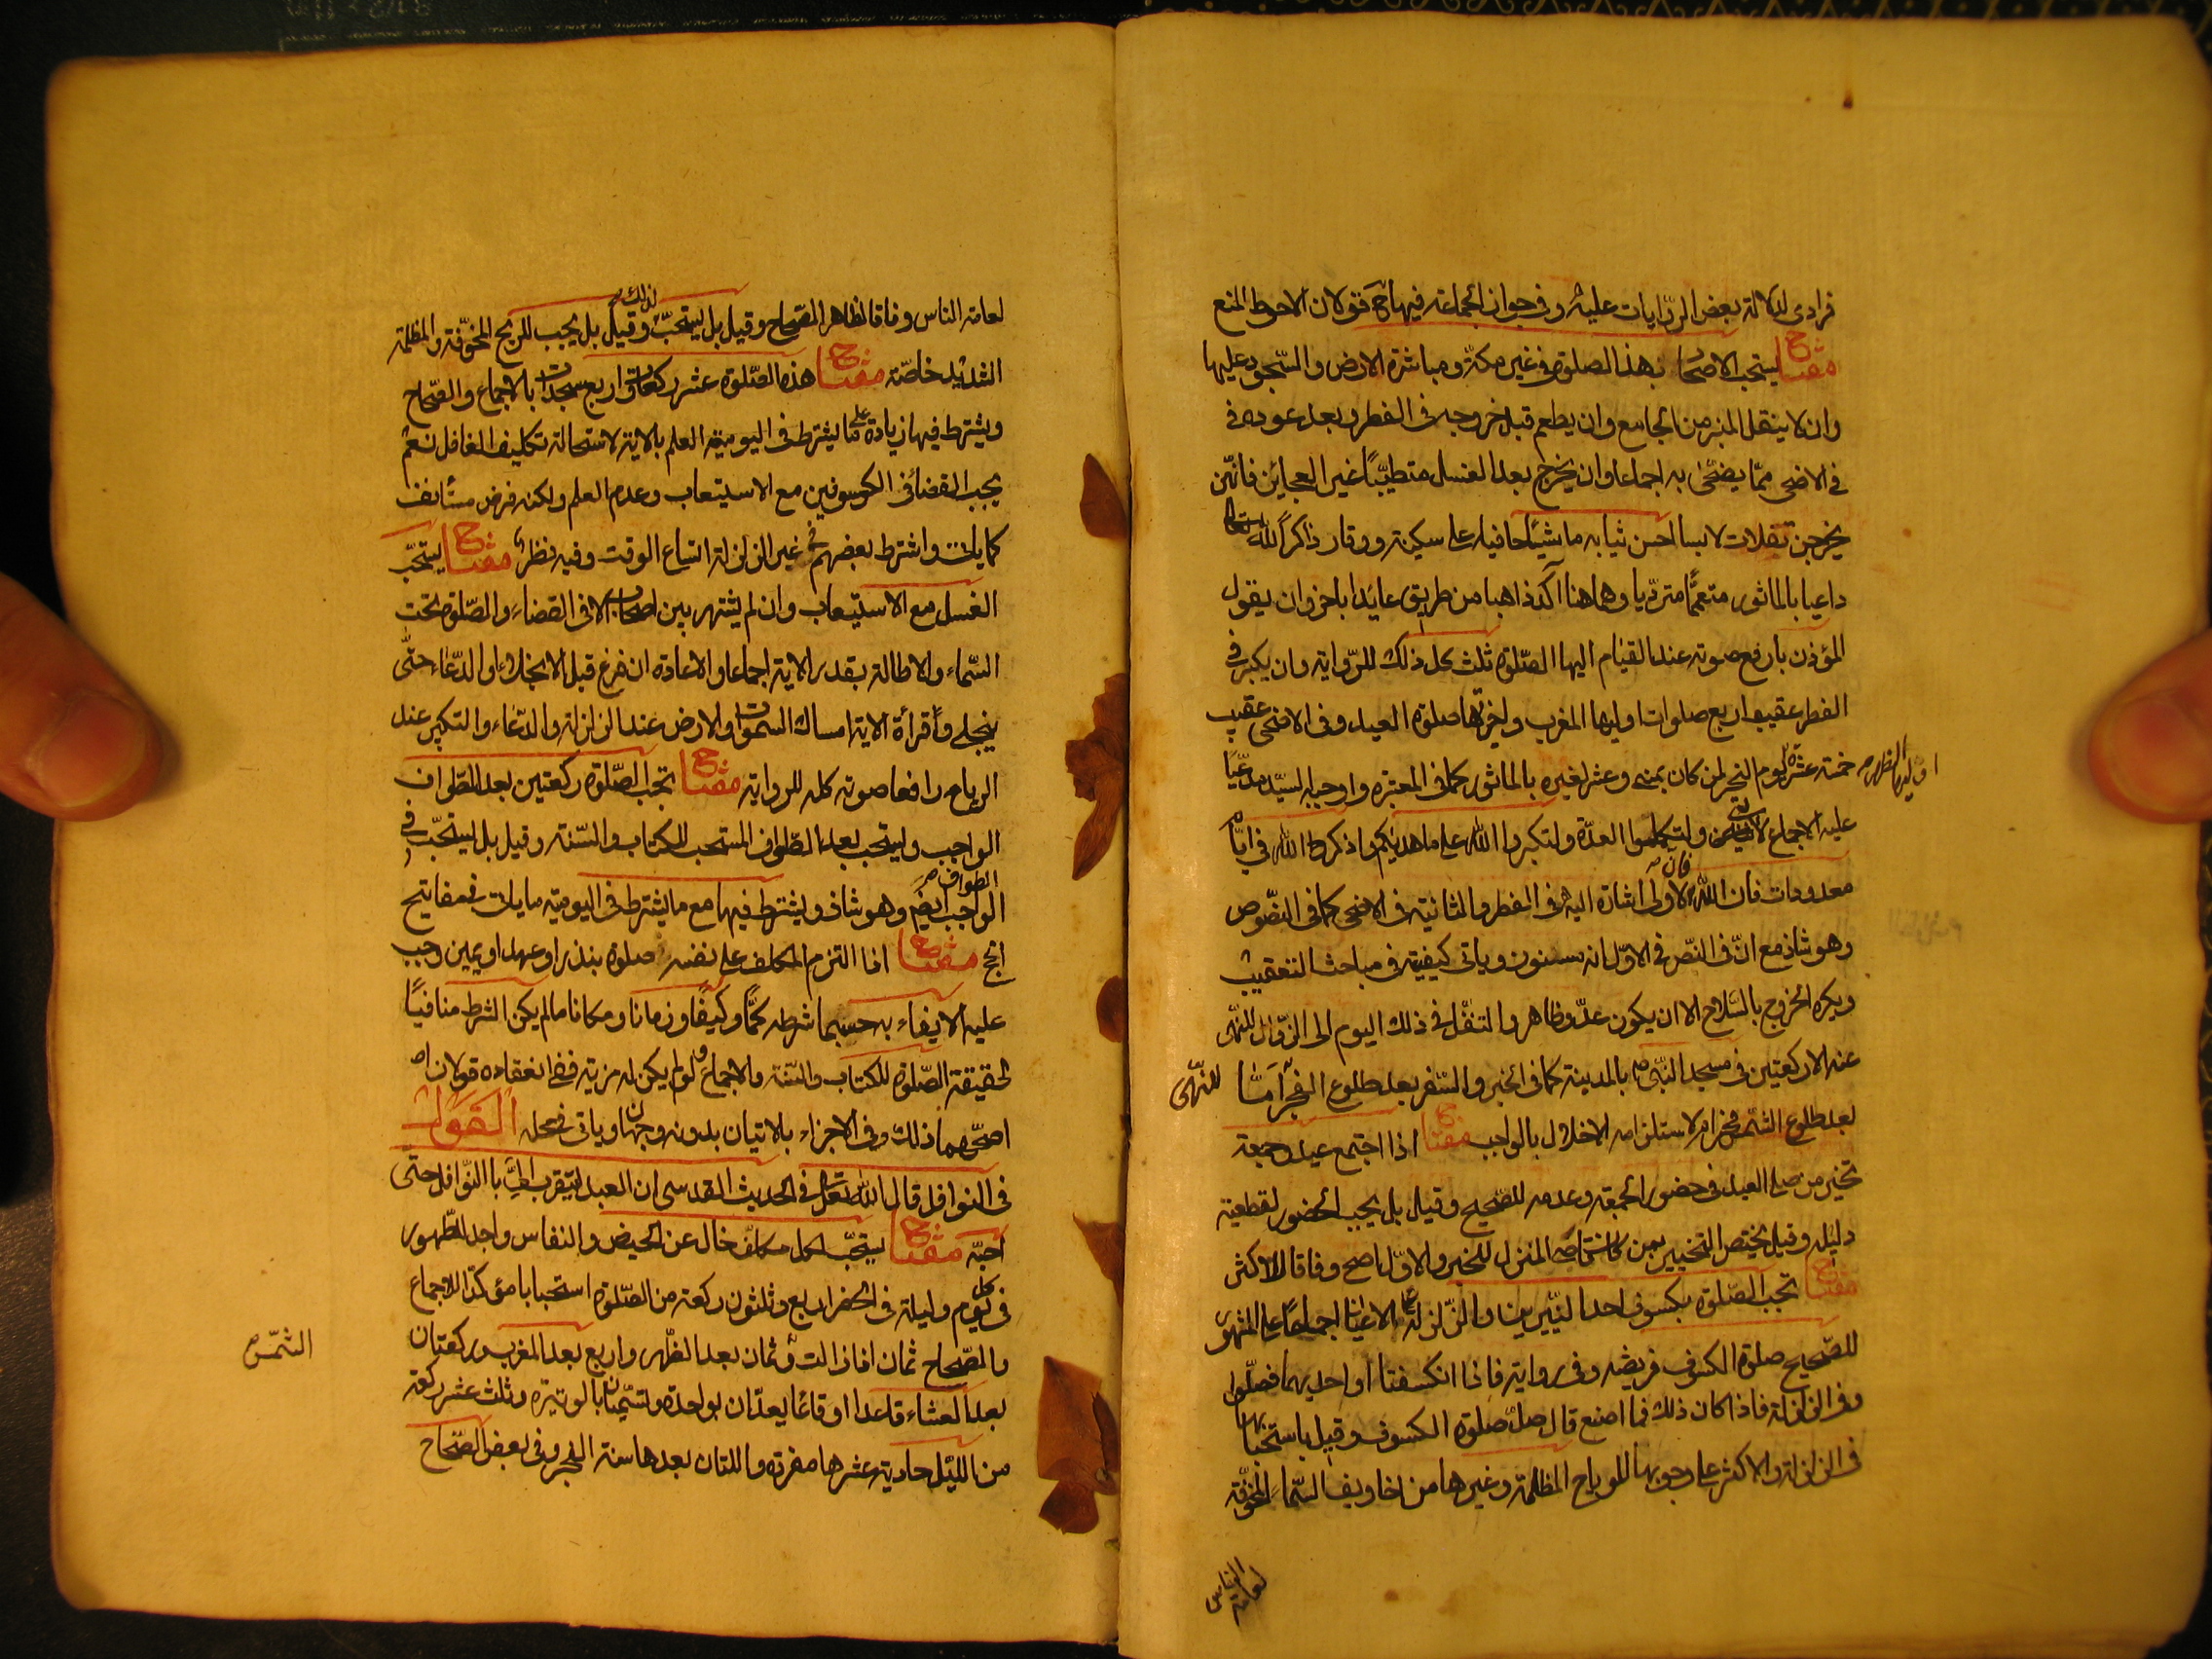 فرادى لدلالة بعض الروايات عليه وفى جواز الجماعة فيها ح قولان الاحوط المنع
مفتاح يستحب الاصحار بهذه الصلوة فى غير مكة ومباشرة الارض والسجود عليها
وان لا ينقل المنبر من الجامع وان يطعم قبل خروجه فى الفطر وبعد عوده فى
فى الاضحى مما يضحى به اجماعا وان يخرج بعد الغسل متطيبا غير العجايز فانهن
يخرجن تفلات لابسا احسن ثيابه ماشيا حافيا على سكينة ووقار ذاكرا لله تعالى
داعيا بالماثور متعمما مترديا وهما هنا آكد ذاهبا من طريق عائدا باخر وان يقول
المؤذن بارفع صوته عند القيام اليها الصلوة ثلث كل ذلك للرواية وان يكبر فى
الفطر عقيب اربع صلوات اوليها المغرب واخرتها صلوة العيد وفى الاضحى عقيب
خمسة عشرة يوم النحر لمن كان بمنى وعشر لغيره بالماثور كما فى المعتبرة واوجبه السيد مدعيا
اوليها الظهر
عليه الاجماع ولتكملوا العدة ولتكبروا الله على ما هديكم واذكروا الله فى ايام
معدودات فان الاولى اشارة اليه فى الفطر والثانية فى الاضحى كما فى النصوص
وهو شاذ مع ان فى النص فى الاول انه مسنون وياتى كيفيته فى مباحث التعقيب
ويكره الخروج بالسلاح الا ان يكون عدو ظاهر والتنفل فى ذلك اليوم الى الزوال للنهى
عنه الا ركعتين فى مسجد النبى ص بالمدينة كما فى الخبر والسفر بعد طلوع الفجر اما
للنهى
بعد طلوع الشمس فحرام لاستلزامه الاخلال بالواجب مفتاح اذا اجتمع عيد وجمعة
تخير من صلى العيد فى حضور الجمعة وعدمه للصحيح وقيل بل يجب الحضور لقطعية
دليله وقيل يختص التخيير بمن كان قاصى المنزل للخبر والاول اصح وفاقا للاكثر
مفتاح تجب الصلوة بكسوف احد النيرين والزلزلة على الاعيان اجماعا على المشهور
للصحيح صلوة الكسوف فريضة وفى رواية فاذا انكسفتا او احديهما فصلوا
وفى الزلزلة فاذا كان ذلك فما اصنع قال صل صلوة الكسوف وقيل باستحبابها
فى الزلزلة والاكثر على وجوبها للرياح المظلمة وغيرها من اخاويف السماء المخوفة
لعامة الناس
لعامة الناس وفاقا لظاهر الصحاح وقيل بل يستحب لذلك وقيل بل يجب للريح المخوفة والمظلمة
الشديد خاصة مفتاح هذه الصلوة عشر ركعات واربع سجدات بالاجماع والصحاح
ويشترط فيها زيادة على ما يشترط فى اليومية العلم بالاية لاستحالة تكليف الغافل نعم
يجب القضاء فى الكسوفين مع الاستيعاب وعدم العلم ولكنه فرض مستأنف
كما ياتى واشترط بعضهم فى غير الزلزلة اتساع الوقت وفيه نظر مفتاح يستحب
الغسل مع الاستيعاب وان لم يشتهر بين اصحابنا الا فى القضاء والصلوة تحت
السماء والاطالة بقدر الاية اجماعا والاعادة ان فرغ قبل الانجلاء او الدعاء حتى
ينجلى وقرأة الاية امساك السموات والارض عند الزلزلة والدعاء والتكبير عند
الرياح رافعا صوته كله للرواية مفتاح تجب الصلوة ركعتين بعد الطواف
الواجب ويستحب بعد الطواف المستحب للكتاب والسنة وقيل بل يستحب فى
الطواف
الواجب ايضا وهو شاذ ويشترط فيها مع ما يشترط فى اليومية ما ياتى فى مفاتيح
الحج مفتاح اذا التزم المكلف على نفسه صلوة بنذر او عهد او يمين وجب
عليه الايفاء به حسبما شرطه كما وكيفا وزمانا ومكانا ما لم يكن الشرط منافيا
لحقيقة الصلوة للكتاب والسنة والاجماع ولو لم يكن له مزية ففى انعقاده قولان
اصحهما ذلك وفى الاجزاء بالاتيان بدونه وجهان وياتى فى محله القول
فى النوافل قال الله تعالى فى الحديث القدسى ان العبد ليتقرب الى بالنوافل حتى
احبه مفتاح يستحب لكل مكلف خال عن الحيض والنفاس واجد الطهور
فى كل يوم وليلة فى الحضر اربع وثلثون ركعة من الصلوة استحبابا مؤكدا للاجماع
والصحاح ثمان اذا زالت وثمان بعد الظهر واربع بعد المغرب وركعتان
الشمس
بعد العشاء قاعدا او قائما يعدان بواحدة وتسميان بالوتيرة وثلث عشر ركعة
من الليل حادية عشرها مفردة واللتان بعدها سنة الفجر وفى بعض الصحاح